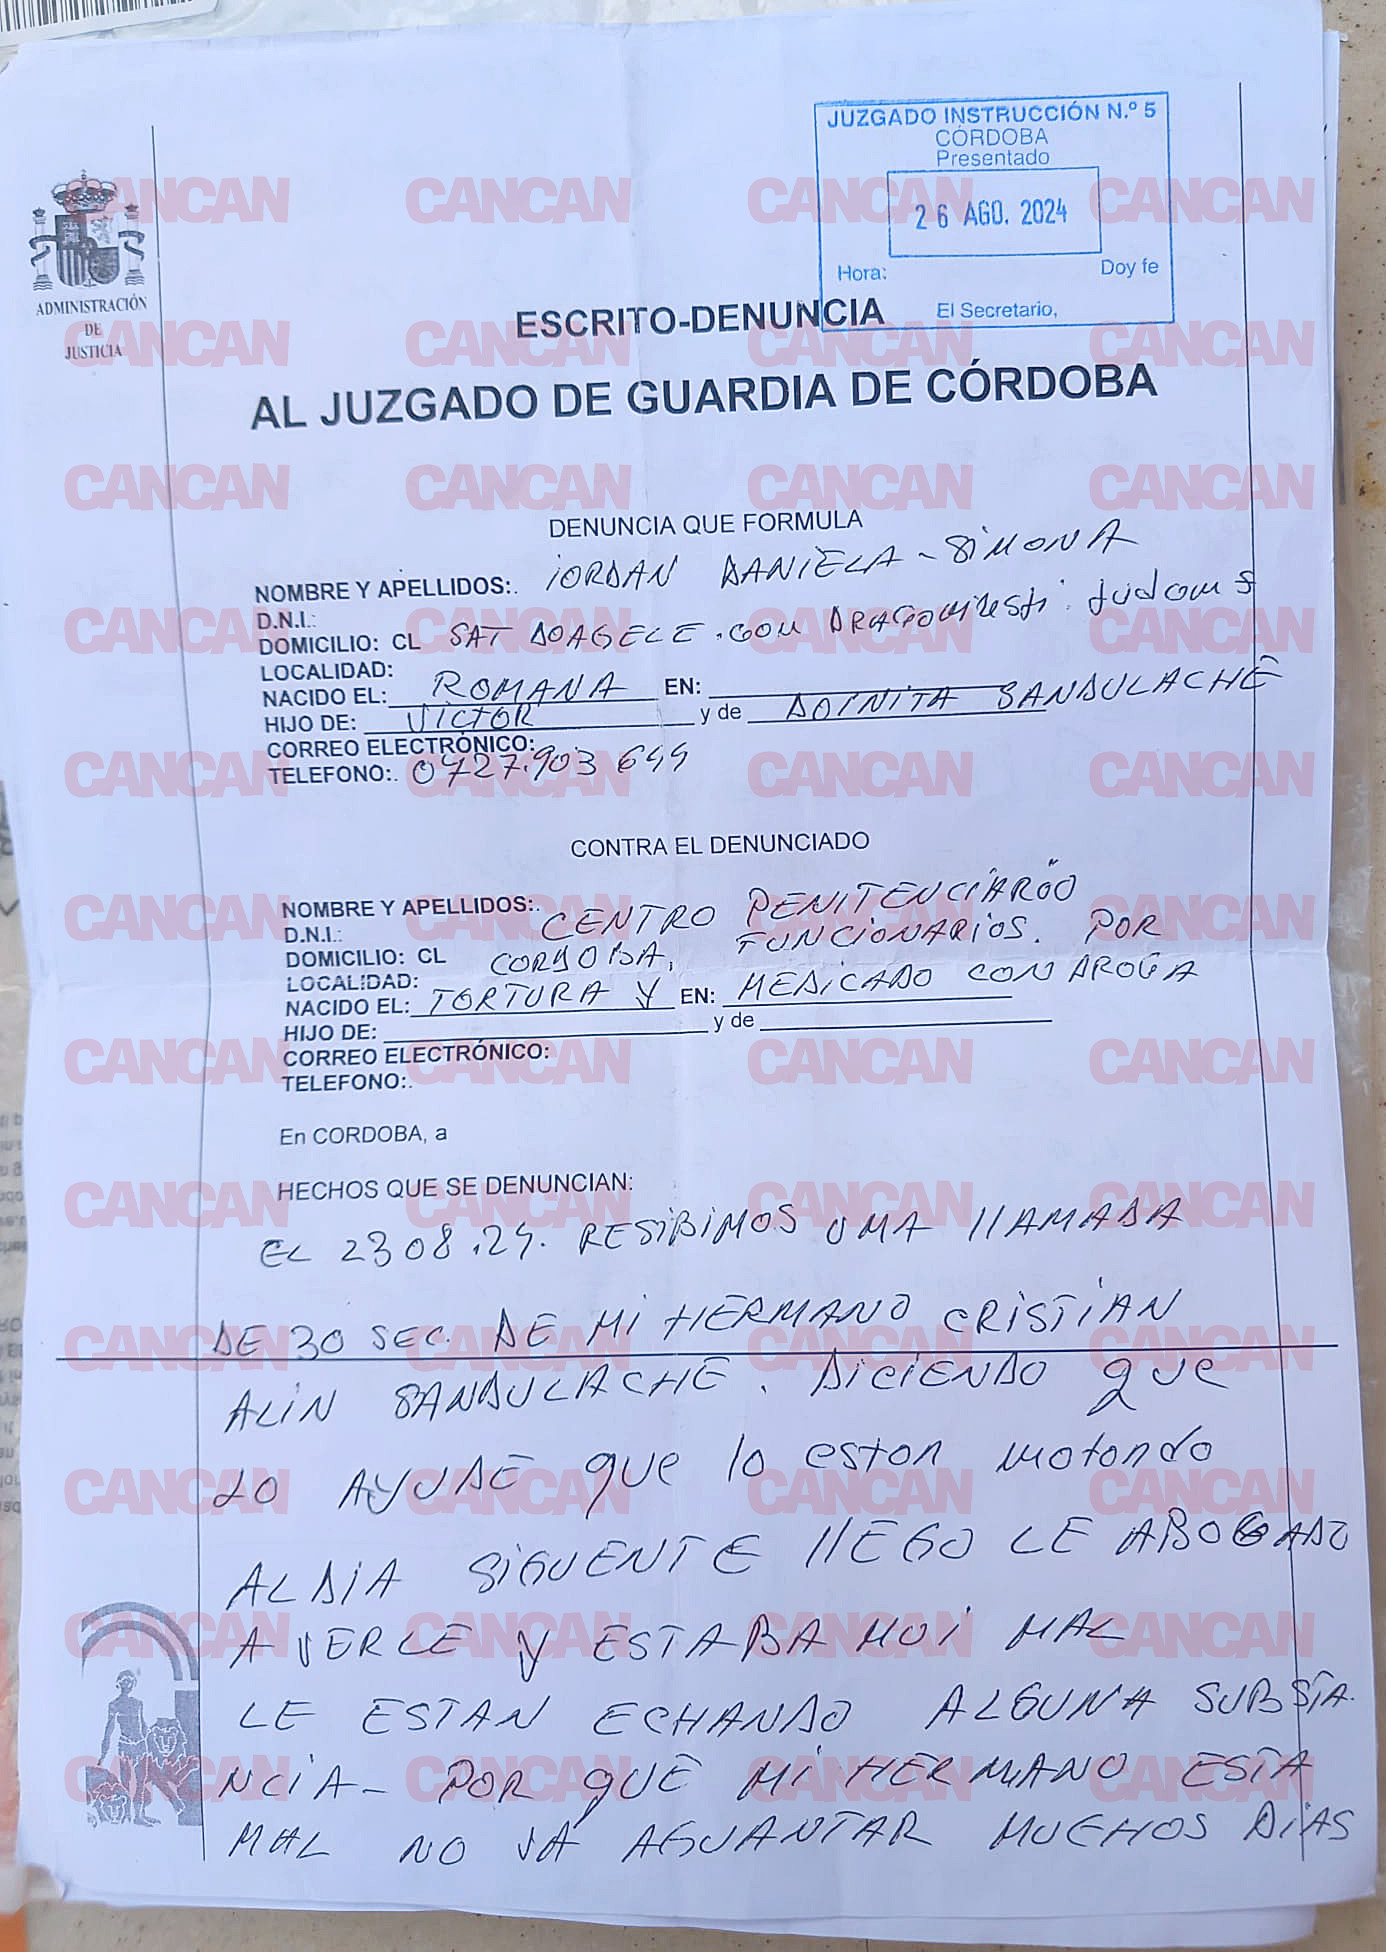 JUZGADO INSTRUCCIÓN N.º 5
CÓRDOBA
Presentado
26 AGO. 2024
Hora: Doy fe
El Secretario,
ADMINISTRACIÓN
DE
JUSTICIA
ESCRITO-DENUNCIA
AL JUZGADO DE GUARDIA DE CÓRDOBA
DENUNCIA QUE FORMULA
NOMBRE Y APELLIDOS:. IORDAN DANIELA-SIMONA
D.N.I.:
DOMICILIO: CL SAT DOAGELE. COM DRAGOMIRESTI.
LOCALIDAD:
NACIDO EL: ROMANA EN:
HIJO DE: VICTOR y de DOINITA SANDULACHE
CORREO ELECTRÓNICO:
TELEFONO:. 0727.903 644
CONTRA EL DENUNCIADO
NOMBRE Y APELLIDOS:. CENTRO PENITENCIARIO
D.N.I.:
DOMICILIO: CL CORDOBA, FUNCIONARIOS. POR
LOCALIDAD:
NACIDO EL: TORTURA Y EN: MEDICADO CON DROGA
HIJO DE: y de
CORREO ELECTRÓNICO:
TELEFONO:.
En CORDOBA, a
HECHOS QUE SE DENUNCIAN:
EL 23 08.24. RESIBIMOS UMA llAMADA
DE 30 SEC. DE MI HERMANO CRISTIAN
ALIN SANDULACHE. DICIENDO que
LO AYUDE que lo eston motondo
AL DIA SIGUENTE llEGO LE ABOGADO
A VERLE Y ESTABA MUI MAL
LE ESTAN ECHANDO ALGUNA SUBSTA
NCIA- POR quE MI HERMANO ESTA
MAL NO VA AGUANTAR MUCHOS DIAS
CANCAN